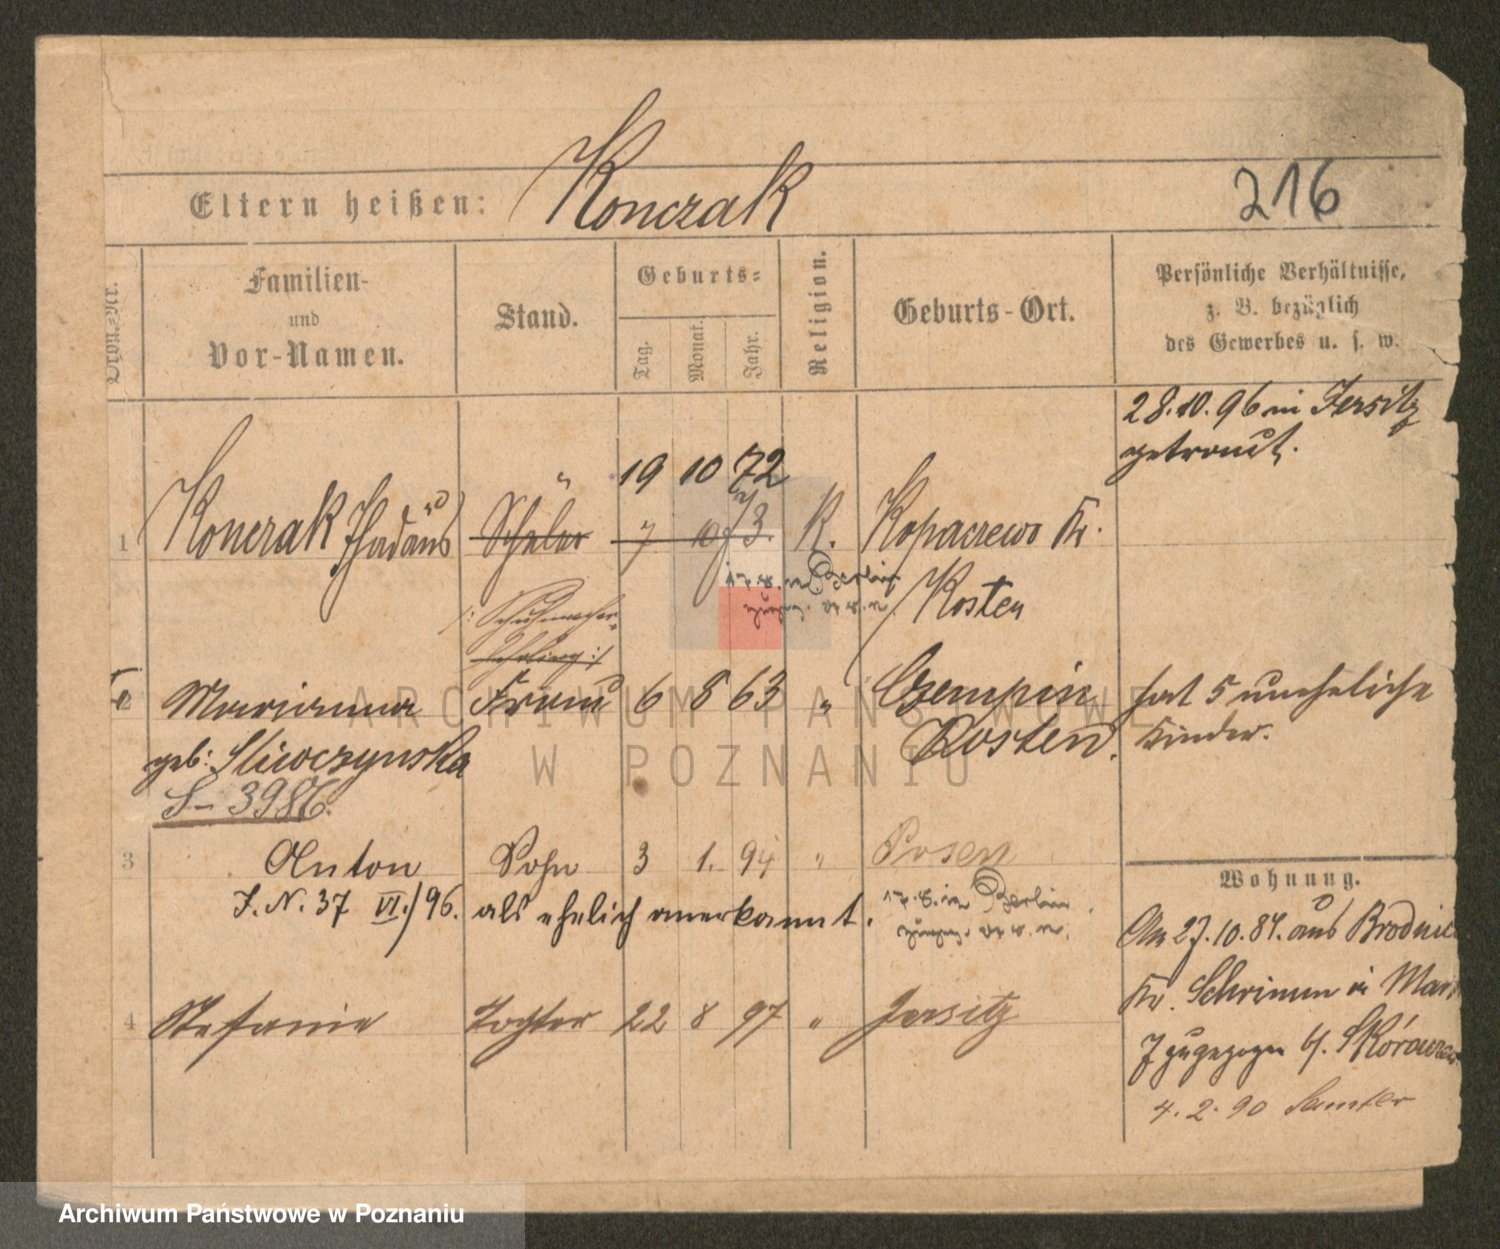 Konczak
216
Eltern heißen:
Ordn.-Nr.
Familien-
und
Vor-Namen.
Stand.
Geburts-
Tag.
Monat.
Jahr.
Religion.
Geburts-Ort.
Persönliche Verhältnisse,
z. B. bezüglich
des Gewerbes u. s. w.
28.10.96 in Jersitz
getraut.
19 10 72
1 Konczak Thadäus Schüler 7 10 73. K. Kopaczewo Kr.
Kosten
/: Schuhmacher-
Lehrling :/
2 Marianna Frau 6 8 63 " Czempin hat 5 uneheliche
geb: Sliwczynska Kosten. Kinder.
S- 3986.
3 Anton Sohn 3 1. 94 " Posen
J. N. 37 VI./96. als ehelich anerkannt.
17.8. in Berlin
Wohnung.
Am 27.10.87. aus Brodni
Kr. Schrimm in Mar
7 zugezogen b/.
4.2.90 Samter
4 Stefanie Tochter 22 8 97 " Jersitz
ARCHIWUM PAŃSTWOWE
W POZNANIU
Archiwum Państwowe w Poznaniu